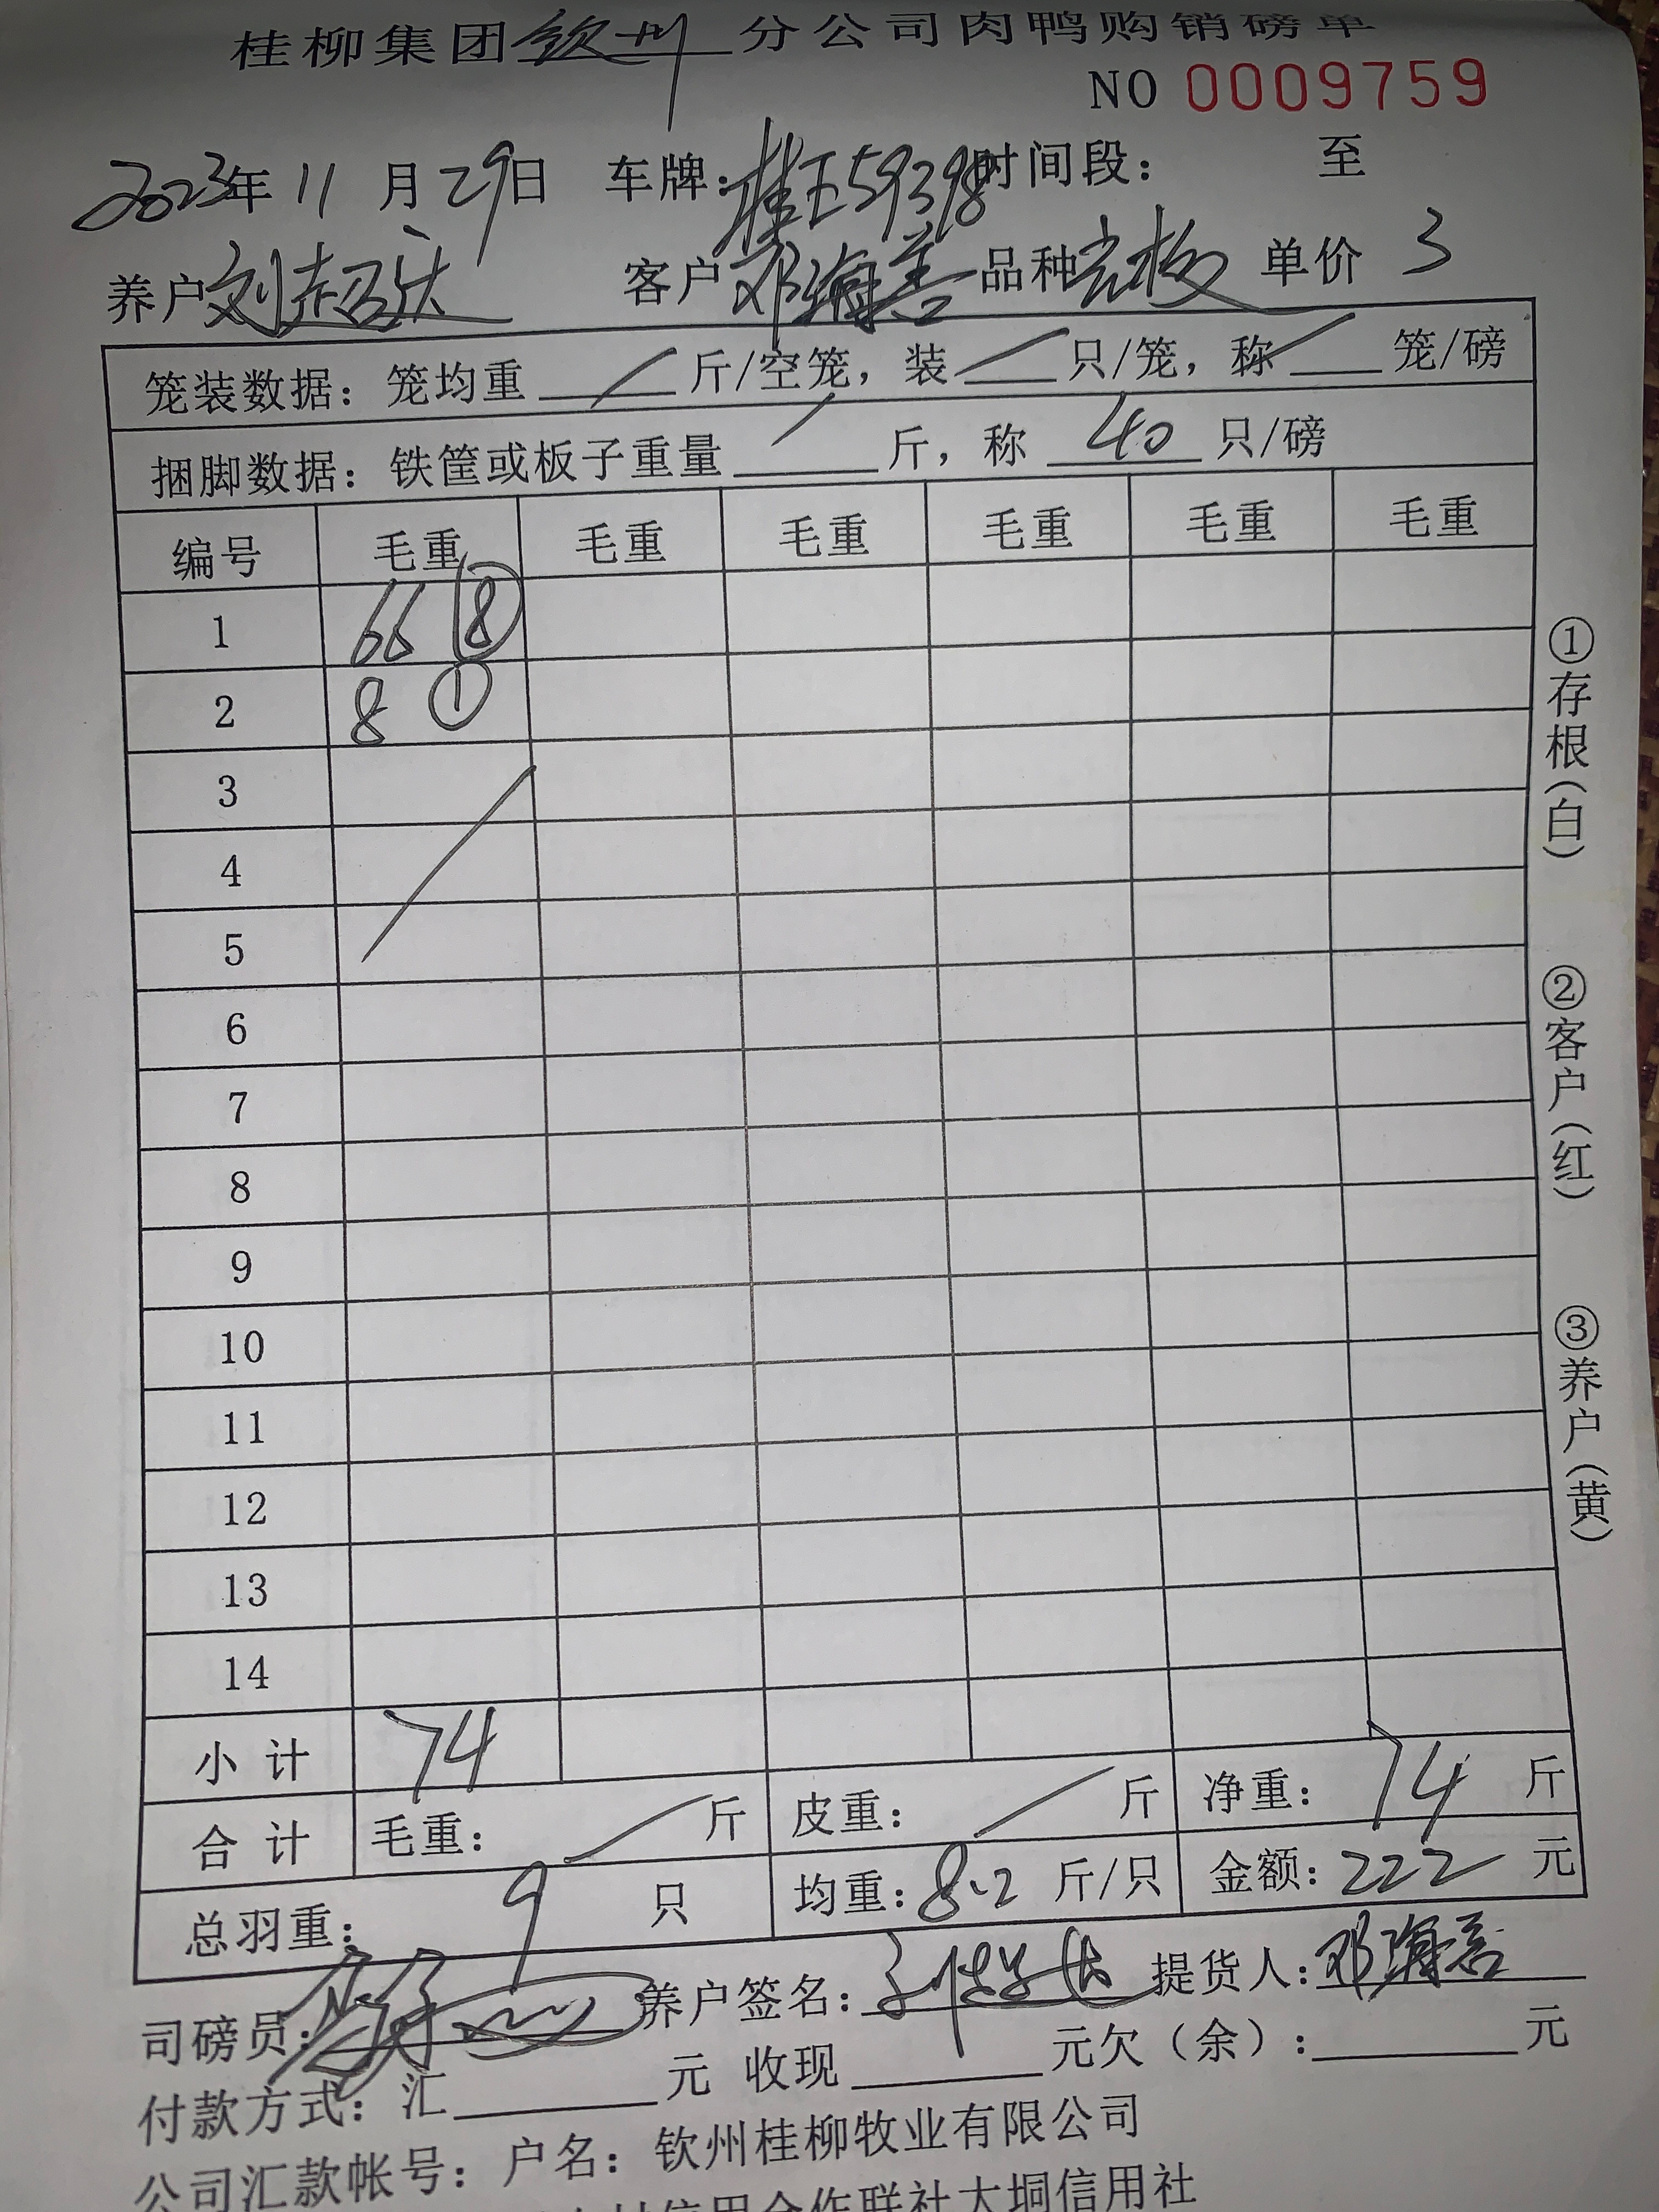 桂柳集团钦州分公司肉鸭购销磅单
NO 0009759
2023年11月29日 车牌: 59398 时间段: 至
养户刘超庆 客户邓海善 品种 单价 3
笼装数据: 笼均重 / 斤/空笼, 装 / 只/笼, 称 / 笼/磅
捆脚数据: 铁筐或板子重量 / 斤, 称 40 只/磅
编号 毛重 毛重 毛重 毛重 毛重 毛重
1 66 ⑧
2 8 ①
3
4
5
6
7
8
9
10
11
12
13
14
小计 74
合计 毛重: / 斤 皮重: / 斤 净重: 74 斤
总羽重: 9 只 均重: 8.2 斤/只 金额: 222 元
司磅员: 养户签名: 提货人: 邓海善
付款方式: 汇 元 收现 元欠(余): 元
公司汇款帐号: 户名: 钦州桂柳牧业有限公司
信用合作联社大垌信用社
①存根(白)
②客户(红)
③养户(黄)